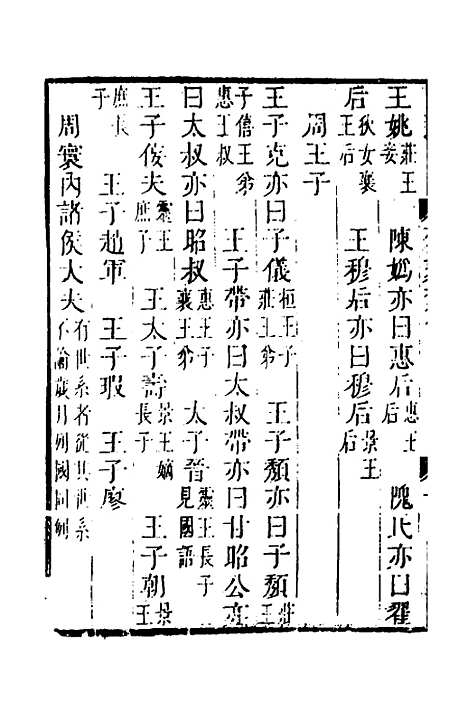 王姚莊王妾　陳媯亦曰惠后惠王后　隗氏亦曰翟
后狄女襄王后　王穆后亦曰穆后景王后
周王子
王子克亦曰子儀桓王子莊王弟　王子頹亦曰子頹莊王
子僖王弟惠王叔　王子帶亦曰太叔帶亦曰甘昭公亦
曰太叔亦曰昭叔惠王子襄王弟　太子晉靈王長子見國語
王子佞夫靈王庶子　王太子壽景王嫡長子　王子朝景王
庶長子　王子趙車　王子瑕　王子廖
周寰內諸侯大夫有世系者從其世系不論歲月列國同例